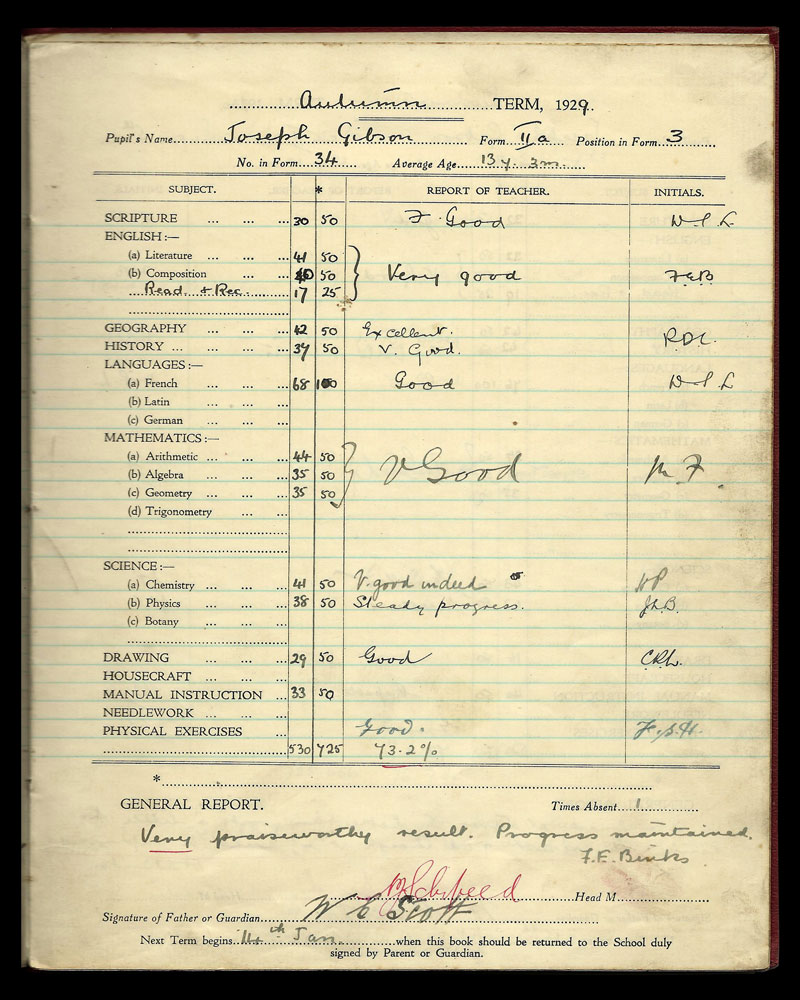 Autumn TERM, 1929.
Pupil's Name Joseph Gibson Form IIa Position in Form 3
No. in Form 34 Average Age 13y. 3m.
SUBJECT. * REPORT OF TEACHER. INITIALS.
SCRIPTURE ... ... ... 30 50 F. Good
ENGLISH :—
(a) Literature ... ... ... 41 50
(b) Composition ... ... 50 Very good F.E.B
Read. + Rec. 17 25
GEOGRAPHY ... ... ... 42 50 Excellent.
HISTORY ... ... ... ... 39 50 V. Good.
LANGUAGES :—
(a) French ... ... ... 68 100 Good
(b) Latin ... ... ...
(c) German ... ... ...
MATHEMATICS :—
(a) Arithmetic ... ... ... 44 50
(b) Algebra ... ... ... 35 50 V Good M. F.
(c) Geometry ... ... ... 35 50
(d) Trigonometry ... ...
SCIENCE :—
(a) Chemistry ... ... ... 41 50 V. good indeed
(b) Physics ... ... ... 38 50 Steady progress. J.L.B.
(c) Botany ... ... ...
DRAWING ... ... ... 29 50 Good
HOUSECRAFT ... ... ...
MANUAL INSTRUCTION ... 33 50
NEEDLEWORK ... ... ...
PHYSICAL EXERCISES ... Good.
530 725 73.2%
*
GENERAL REPORT. Times Absent 1
Very praiseworthy result. Progress maintained.
F.E. Binks
Head M
Signature of Father or Guardian W C Scott
Next Term begins 14th Jan. when this book should be returned to the School duly
signed by Parent or Guardian.